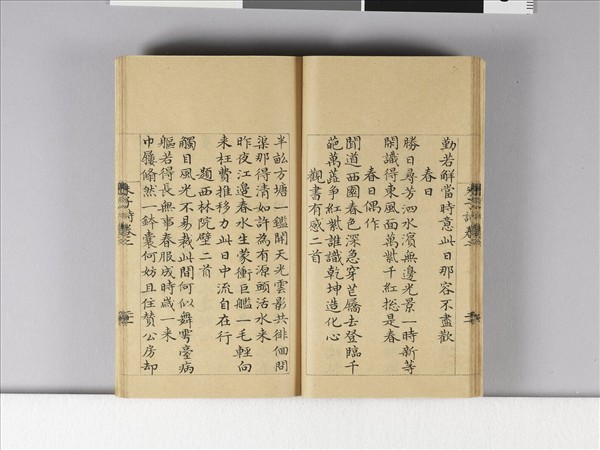 勤若鮮當時意此日那容不盡歡
春日
勝日尋芳泗水濱無邊光景一時新等
閒識得東風面萬紫千紅揔是春
春日偶作
聞道西園春色深急穿芒屩去登臨千
葩萬蕋爭紅紫誰識乾坤造化心
觀書有感二首
半畝方塘一鑑開天光雲影共徘徊問
渠那得清如許為有源頭活水來
昨夜江邊春水生蒙衝巨艦一毛輕向
来枉費推移力此日中流自在行
題西林院壁二首
觸目風光不易裁此間何似舞雩臺病
軀若得長無事春服成時歲一来
巾屨翛然一鉢囊何妨且住贊公房却